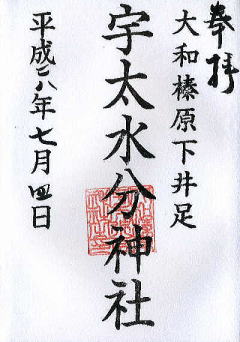 奉拝
大和榛原下井足
宇太水分神社
平成二八年七月四日